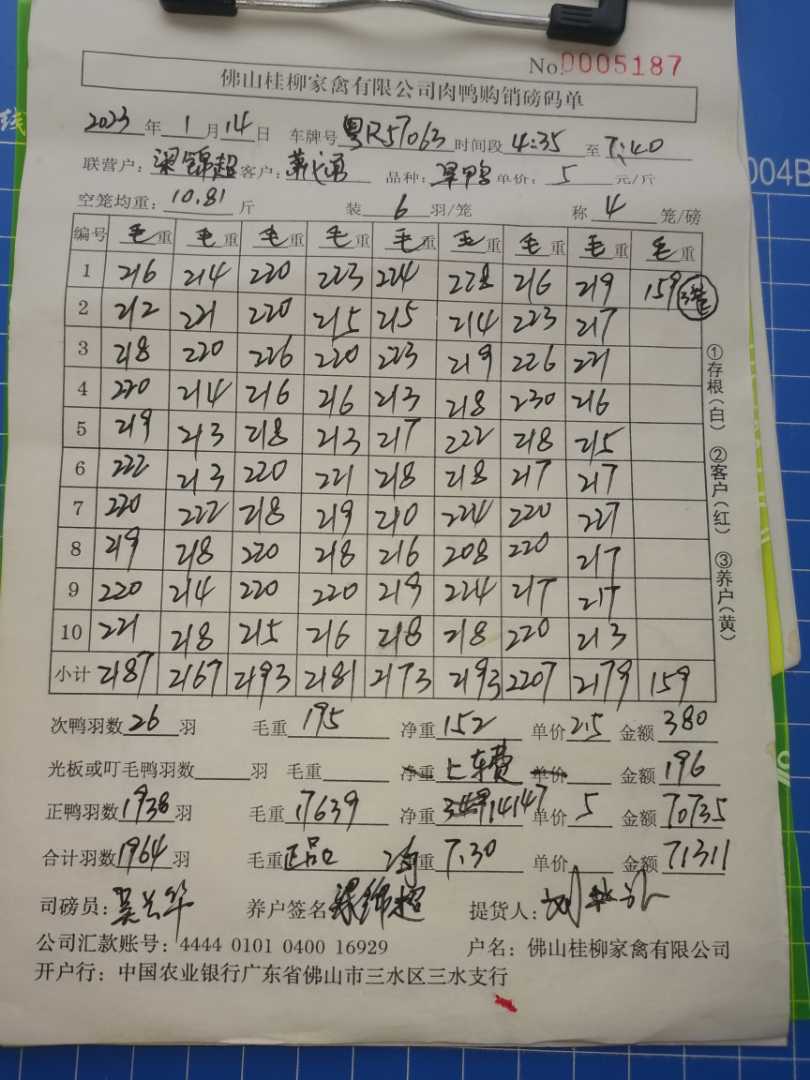 No.0005187
佛山桂柳家禽有限公司肉鸭购销磅码单
2023年1月14日 车牌号粤R57063时间段4:35至7:40
联营户:梁锦超客户: 品种: 单价:5元/斤
空笼均重:10.81斤 装6羽/笼 称4笼/磅
编号 毛重 毛重 毛重 毛重 毛重 毛重 毛重 毛重 毛重
1 216 214 220 223 224 228 216 219 159
2 212 221 220 215 215 214 223 217
3 218 220 226 220 223 219 226 221
4 220 214 216 216 213 218 230 216
5 219 213 218 213 217 222 218 215
6 222 213 220 221 218 218 217 217
7 220 222 218 219 210 224 220 227
8 219 218 220 218 216 208 220 217
9 220 214 220 220 219 224 217 217
10 221 218 215 216 218 218 220 213
小计 2187 2167 2193 2181 2173 2193 2207 2179 159
次鸭羽数26羽 毛重195 净重152 单价2.5 金额380
光板或叮毛鸭羽数 羽 毛重 净重 上车费 单价 金额196
正鸭羽数1938羽 毛重17639 净重14147 单价5 金额70735
合计羽数1964羽 毛重正品 均重7.30 单价 金额71311
司磅员:吴 华 养户签名梁锦超 提货人:刘
公司汇款账号:4444 0101 0400 16929 户名:佛山桂柳家禽有限公司
开户行:中国农业银行广东省佛山市三水区三水支行
①存根(白) ②客户(红) ③养户(黄)
004B
线